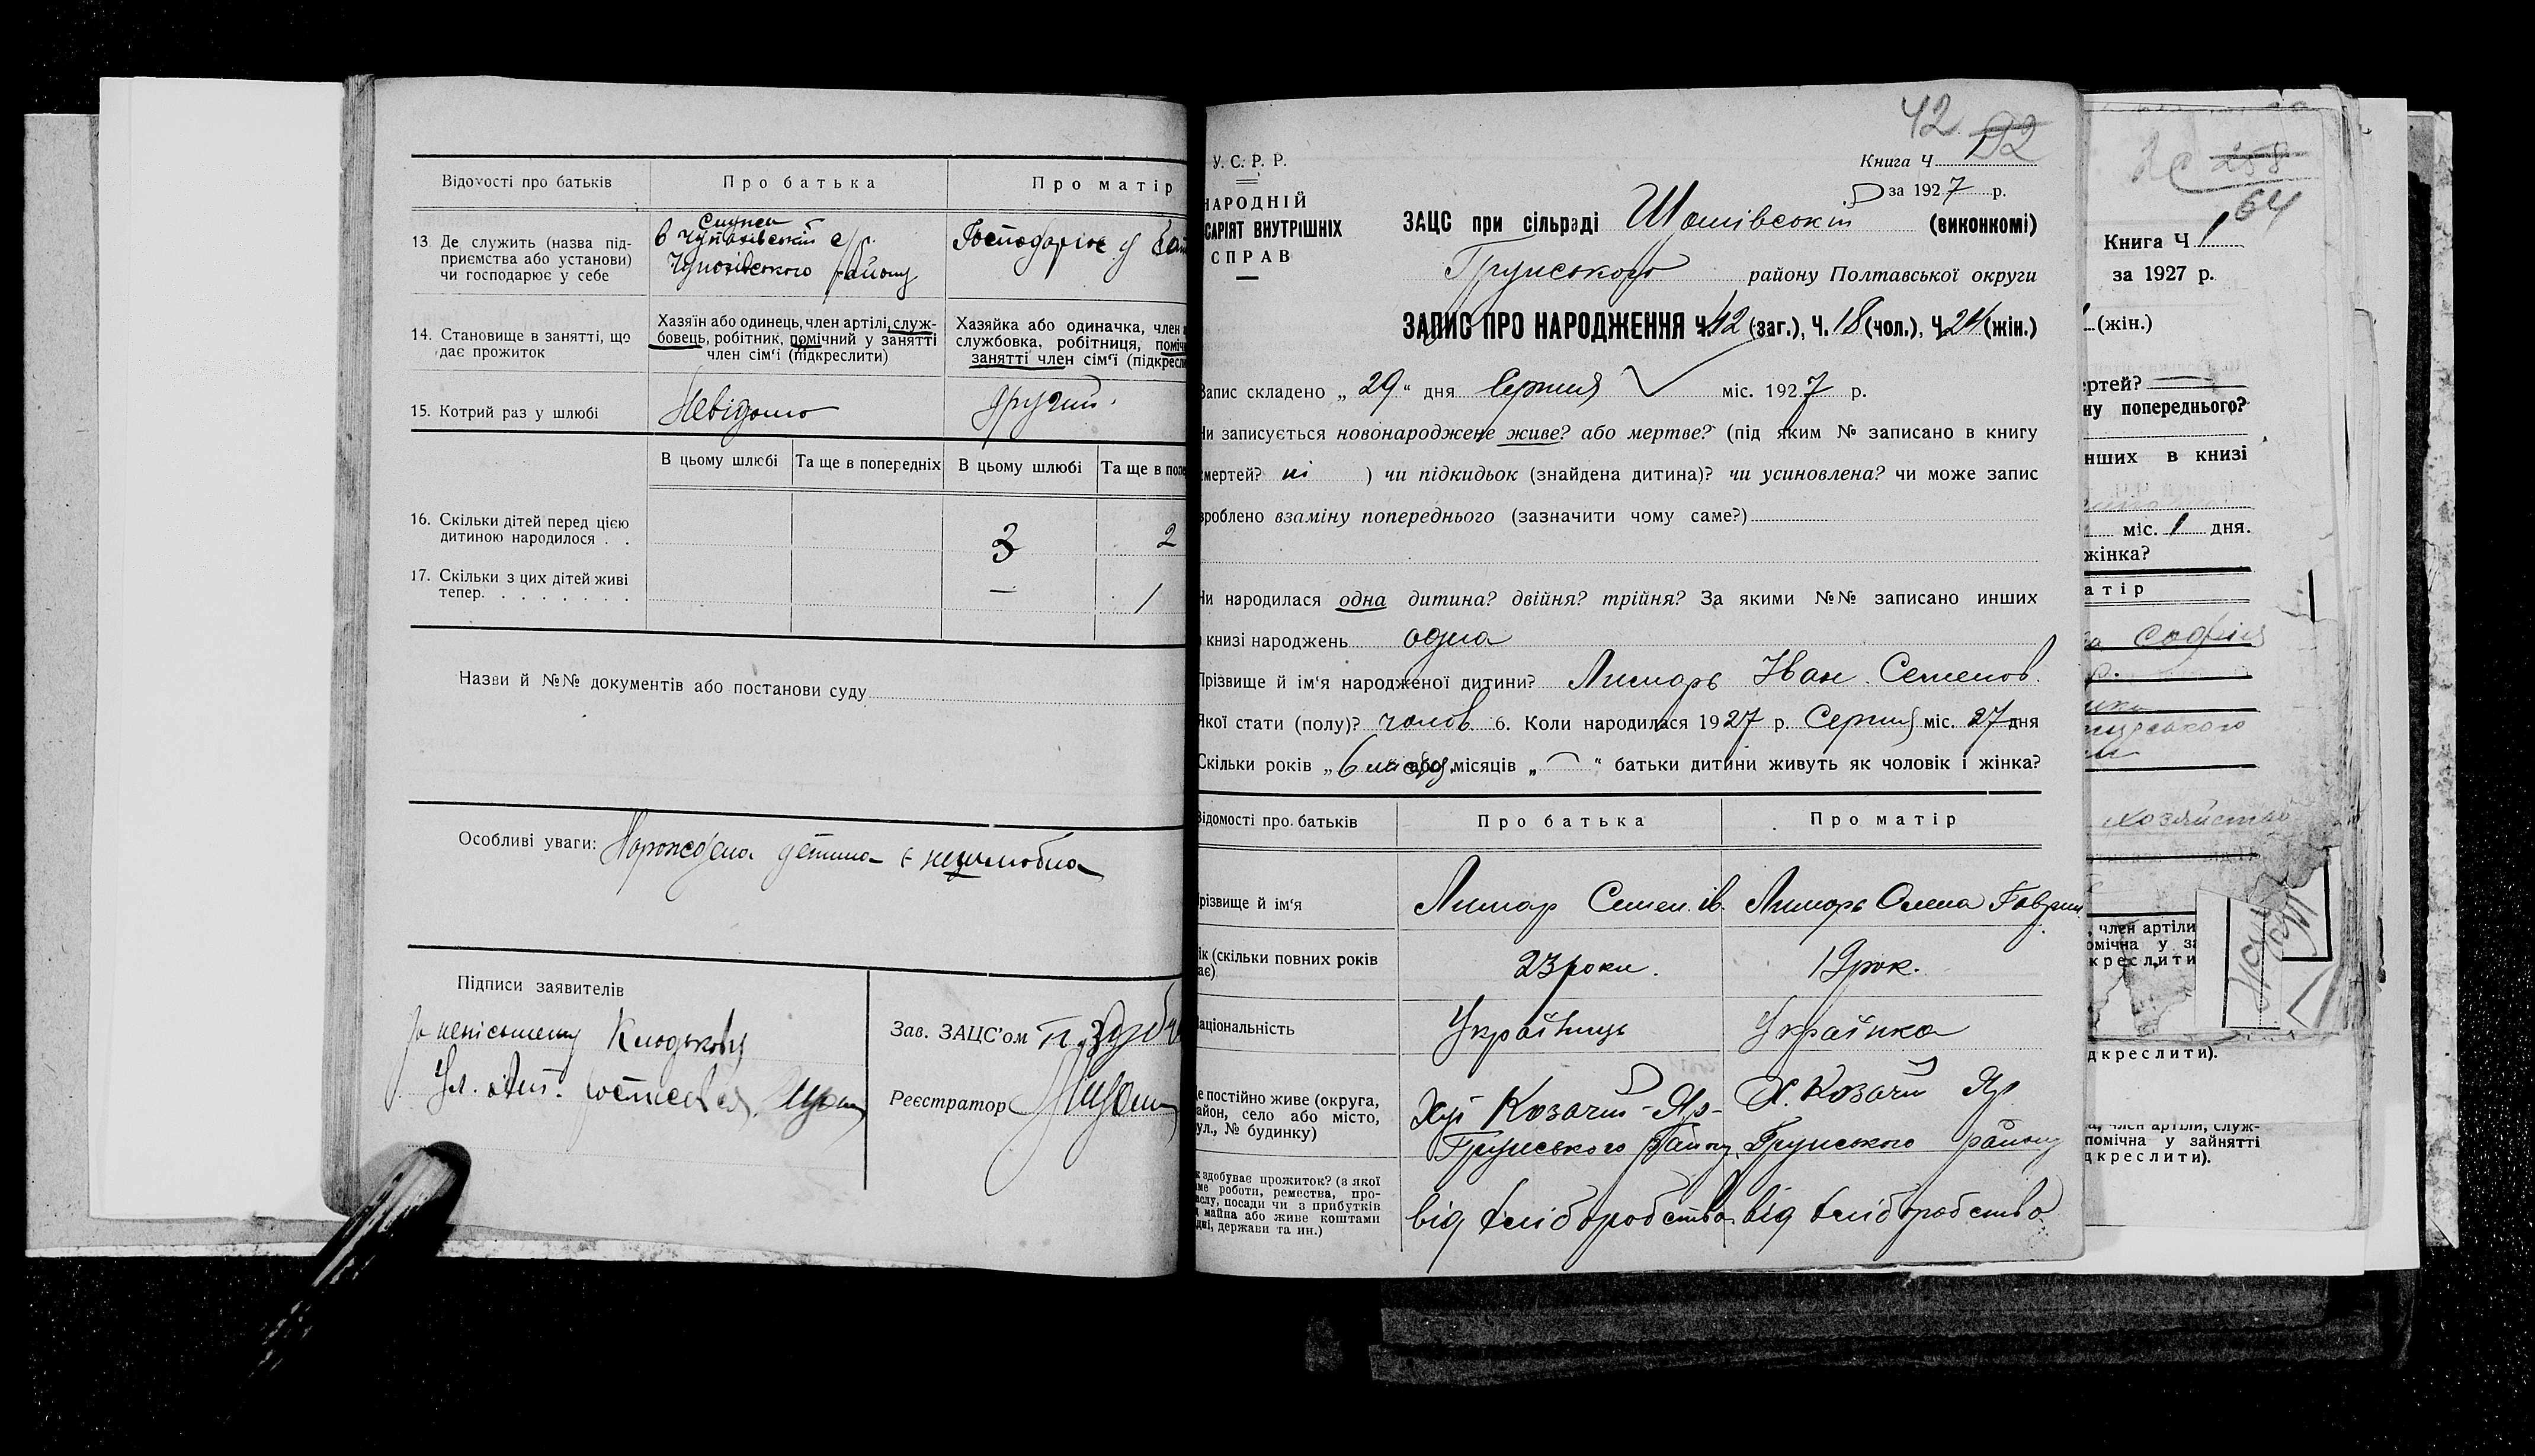 Відомості про батьків
Про батька
Про матір
13. Де служить (назва під-
приємства або установи)
чи господарює у себе
Служе
в Чутівській с/р.
Чутівського району
Господарює у
14. Становище в занятті, що
дає прожиток
Хазяїн або одинець, член артілі, служ-
бовець, робітник, помічний у занятті
член сім'ї (підкреслити)
Хазяйка або одиначка, член
службовка, робітниця, поміч
занятті член сім'ї (підкресл
15. Котрий раз у шлюбі
Невідомо
другий
В цьому шлюбі
Та ще в попередніх
В цьому шлюбі
Та ще в попе
16. Скільки дітей перед цією
дитиною народилося . .
3
2
17. Скільки з цих дітей живі
тепер. . . . . . . .
—
1
Назви й №№ документів або постанови суду
Особливі уваги: Нарождена дитина є нешлюбна
Підписи заявителів
За неписьмену
Зав. ЗАЦС'ом
Реєстратор
42 92
У. С. Р. Р.
НАРОДНІЙ
САРІЯТ ВНУТРІШНІХ
СПРАВ
Книга Ч
за 1927 р.
ЗАЦС при сільраді Шатівській (виконкомі)
Грунського району Полтавської округи
ЗАПИС ПРО НАРОДЖЕННЯ Ч. 42 (заг.), Ч. 18 (чол.), Ч. 24 (жін.)
Запис складено „ 29 “ дня Серпня міс. 1927 р.
Чи записується новонароджене живе? або мертве? (під яким № записано в книгу
смертей? ні ) чи підкидьок (знайдена дитина)? чи усиновлена? чи може запис
зроблено взаміну попереднього (зазначити чому саме?)
Чи народилася одна дитина? двійня? трійня? За якими №№ записано инших
в книзі народжень одна
Прізвище й ім'я народженої дитини? Лимарь Іван Семенов.
Якої стати (полу)? чолов. 6. Коли народилася 1927 р. Серпня міс. 27 дня
Скільки років „ 6 або місяців „ — “ батьки дитини живуть як чоловік і жінка?
Відомості про батьків
Про батька
Про матір
прізвище й ім'я
Лимар Семен ів.
Лимарь Олена Гаврил
ік (скільки повних років
ає)
23 роки.
19 рок.
аціональність
Українець
Українка
е постійно живе (округа,
айон, село або місто,
ул., № будинку)
Хут Козачий-Яр-
Грунського району
Х. Козачий Яр
Грунського району
к здобуває прожиток? (з якої
ме роботи, ремества, про-
ислу, посади чи з прибутків
майна або живе коштами
дні, держави та ин.)
від хліборобства
від хліборобства
258
64
Книга Ч 1
за 1927 р.
(жін.)
ртей?
ну попереднього?
нших в книзі
міс. 1 дня.
жінка?
атір
Софія
член артіли
омічна у за
креслити
дкреслити).
а, член артіли, служ-
помічна у зайнятті
дкреслити).